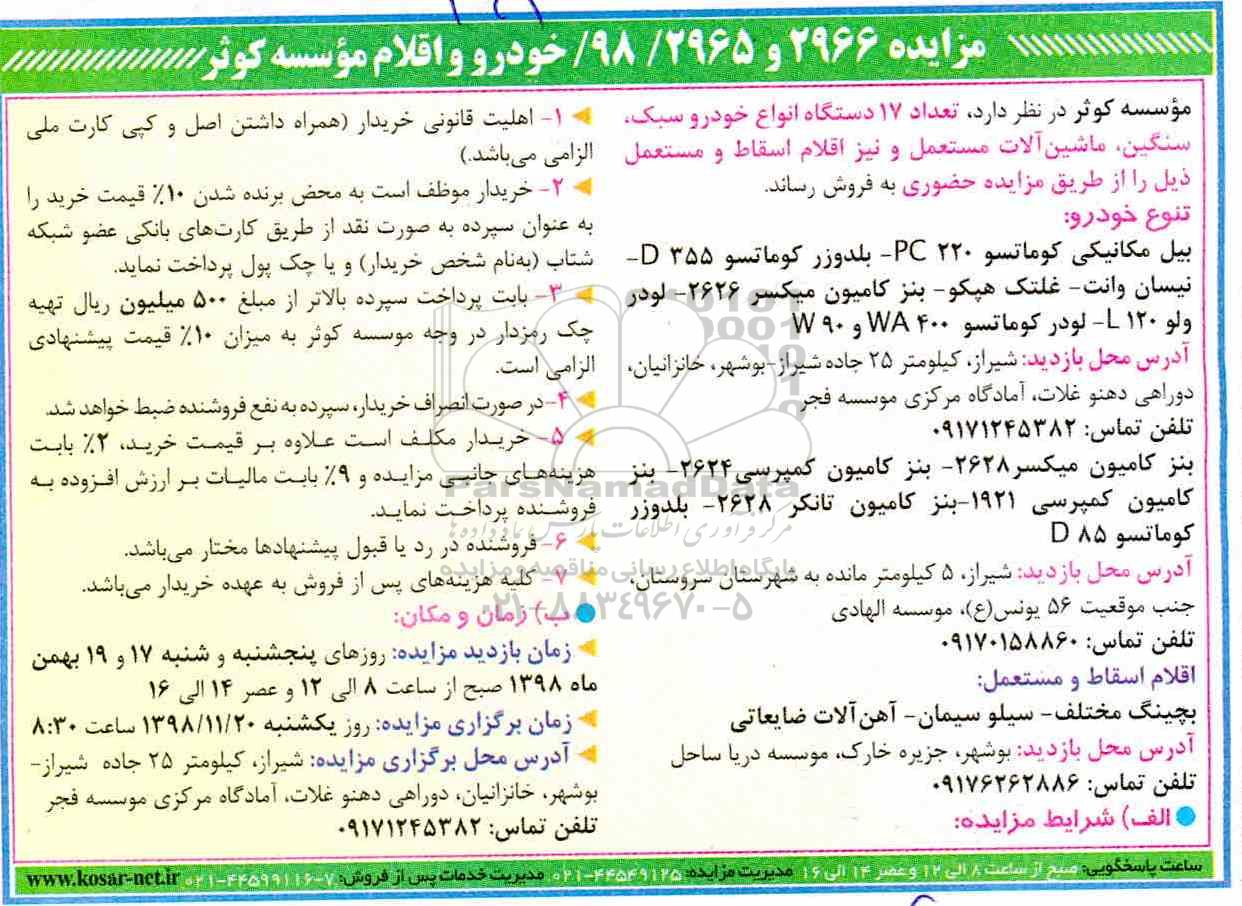 مزایده ۲۹۶۶ و ۲۹۶۵/ ۹۸/ خودرو و اقلام مؤسسه کوثر
مؤسسه کوثر در نظر دارد، تعداد ۱۷ دستگاه انواع خودرو سبک،
سنگین، ماشین‌آلات مستعمل و نیز اقلام اسقاط و مستعمل
ذیل را از طریق مزایده حضوری به فروش رساند.
تنوع خودرو:
بیل مکانیکی کوماتسو ۲۲۰ PC- بلدوزر کوماتسو ۳۵۵ D-
نیسان وانت- غلتک هپکو- بنز کامیون میکسر ۲۶۲۶- لودر
ولو ۱۲۰ L- لودر کوماتسو ۴۰۰ WA و ۹۰ W
آدرس محل بازدید: شیراز، کیلومتر ۲۵ جاده شیراز-بوشهر، خانزانیان،
دوراهی دهنو غلات، آمادگاه مرکزی موسسه فجر
تلفن تماس: ۰۹۱۷۱۲۴۵۳۸۲
بنز کامیون میکسر۲۶۲۸- بنز کامیون کمپرسی۲۶۲۴- بنز
کامیون کمپرسی ۱۹۲۱-بنز کامیون تانکر ۲۶۲۸- بلدوزر
کوماتسو ۸۵ D
آدرس محل بازدید: شیراز، ۵ کیلومتر مانده به شهرستان سروستان،
جنب موقعیت ۵۶ یونس(ع)، موسسه الهادی
تلفن تماس: ۰۹۱۷۰۱۵۸۸۶۰
اقلام اسقاط و مستعمل:
بچینگ مختلف- سیلو سیمان- آهن‌آلات ضایعاتی
آدرس محل بازدید: بوشهر، جزیره خارک، موسسه دریا ساحل
تلفن تماس: ۰۹۱۷۶۲۶۲۸۸۶
الف) شرایط مزایده:
۱- اهلیت قانونی خریدار (همراه داشتن اصل و کپی کارت ملی
الزامی می‌باشد.)
۲- خریدار موظف است به محض برنده شدن ۱۰٪ قیمت خرید را
به عنوان سپرده به صورت نقد از طریق کارت‌های بانکی عضو شبکه
شتاب (به‌نام شخص خریدار) و یا چک پول پرداخت نماید.
۳- بابت پرداخت سپرده بالاتر از مبلغ ۵۰۰ میلیون ریال تهیه
چک رمزدار در وجه موسسه کوثر به میزان ۱۰٪ قیمت پیشنهادی
الزامی است.
۴-در صورت انصراف خریدار، سپرده به نفع فروشنده ضبط خواهد شد.
۵- خریدار مکلف است علاوه بر قیمت خرید، ۲٪ بابت
هزینه‌های جانبی مزایده و ۹٪ بابت مالیات بر ارزش افزوده به
فروشنده پرداخت نماید.
۶- فروشنده در رد یا قبول پیشنهادها مختار می‌باشد.
۷- کلیه هزینه‌های پس از فروش به عهده خریدار می‌باشد.
ب) زمان و مکان:
زمان بازدید مزایده: روزهای پنجشنبه و شنبه ۱۷ و ۱۹ بهمن
ماه ۱۳۹۸ صبح از ساعت ۸ الی ۱۲ و عصر ۱۴ الی ۱۶
زمان برگزاری مزایده: روز یکشنبه ۱۳۹۸/۱۱/۲۰ ساعت ۸:۳۰
آدرس محل برگزاری مزایده: شیراز، کیلومتر ۲۵ جاده شیراز-
بوشهر، خانزانیان، دوراهی دهنو غلات، آمادگاه مرکزی موسسه فجر
تلفن تماس: ۰۹۱۷۱۲۴۵۳۸۲
ساعت پاسخگویی: صبح از ساعت ۸ الی ۱۲ و عصر ۱۴ الی ۱۶ مدیریت مزایده: ۰۲۱-۴۴۵۴۹۱۲۵ مدیریت خدمات پس از فروش: ۰۲۱-۴۴۵۹۹۱۱۶-۷ www.kosar-net.ir
ParsNamadData
مرکز فرآوری اطلاعات پارس نماد داده‌ها
پایگاه اطلاع رسانی مناقصه و مزایده
۰۲۱-۸۸۳۴۹۶۷۰-۵